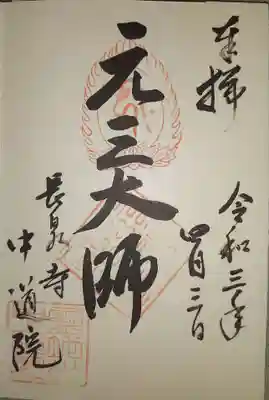 奉拝
令和三年
四月三日
元三大師
長泉寺
中道院